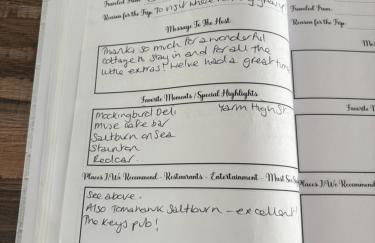 Traveled From:
Reason for the Trip: To visit where
Traveled From:
Reason for the Trip:
Message To The Host
Thanks so much for a wonderful
cottage to stay in and for all the
little extras! We've had a great time
Favorite Moments / Special Highlights
Mockingbird Deli Yarm High St.
Muse cafe bar
Saltburn on Sea
Staunton
Redcar.
Places I/We Recommend - Restaurants - Entertainment - Must See
See above.
Also Tomahawk Saltburn - excellent!
The Keys pub!
Places I/We Recommend